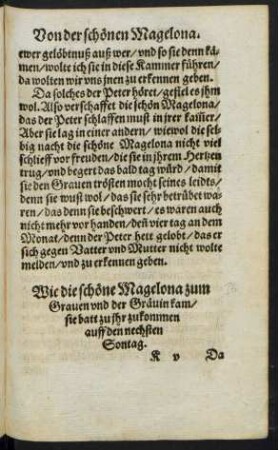 Von der schönen Magelona.
ewer gelöbtnuß auß wer/ vnd so sie denn kä-
men/ wolte ich sie in diese Kammer führen/
da wolten wir vns jnen zu erkennen geben.
Da solches der Peter höret/ gefiel es jhm
wol. Also verschaffet die schön Magelona/
das der Peter schlaffen must in jrer kam̃er/
Aber sie lag in einer andern/ wiewol die sel-
big nacht die schöne Magelona nicht viel
schlieff vor freuden/ die sie in jhrem Hertzen
trug/ vnd begert das bald tag würd/ damit
sie den Grauen trösten mocht seines leidts/
denn sie wust wol/ das sie sehr betrübet wa-
ren/ das denn sie beschwert/ es waren auch
nicht mehr vor handen/ deñ vier tag an dem
Monat/ denn der Peter hett gelobt/ das er
sich gegen Vatter vnd Mutter nicht wolte
melden/ vnd zu erkennen geben.
Wie die schöne Magelona zum
Grauen vnd der Gräuin kam/
sie batt zu jhr zu kommen
auff den nechsten
Sontag.
K v Da